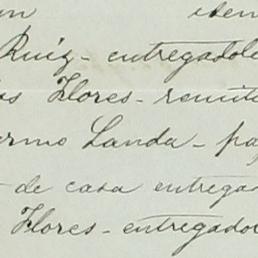 iden
Ruiz - entregadole
Flores - remite
Landa - pa
- de casa entrega
Flores - entregado